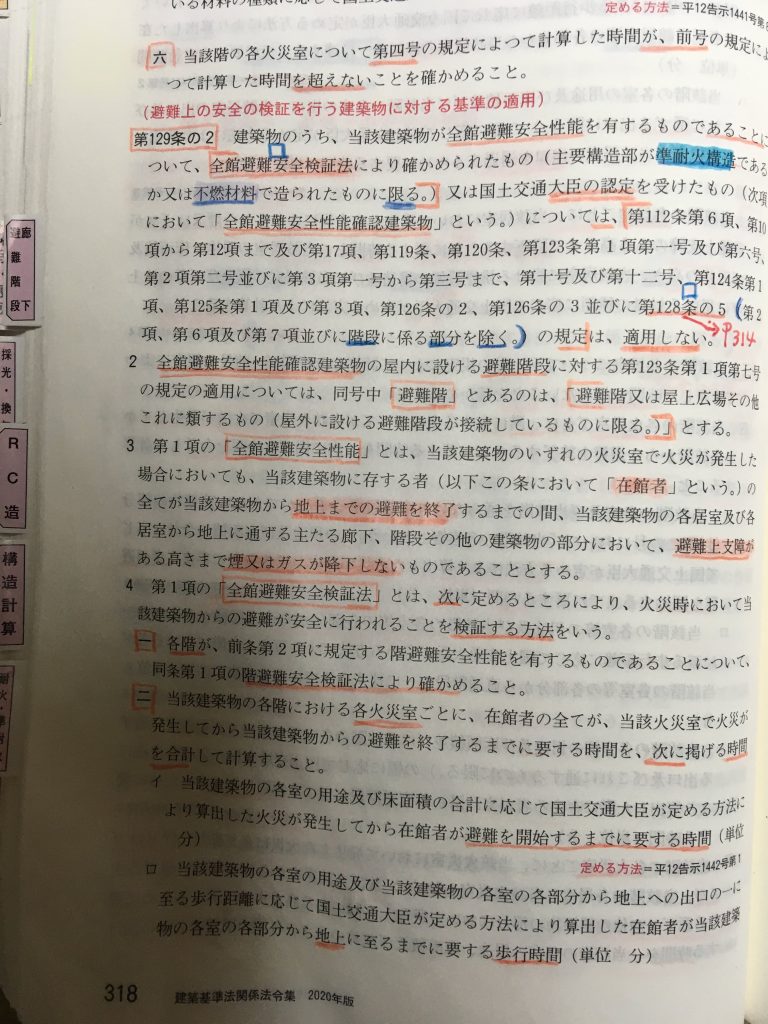 いる材料の種類に応じて国土交通大臣が定める方法
定める方法＝平12告示1441号第6
六 当該階の各火災室について第四号の規定によつて計算した時間が、前号の規定によ
つて計算した時間を超えないことを確かめること。
(避難上の安全の検証を行う建築物に対する基準の適用)
第129条の2 建築物のうち、当該建築物が全館避難安全性能を有するものであることに
ついて、全館避難安全検証法により確かめられたもの（主要構造部が準耐火構造である
か又は不燃材料で造られたものに限る。）又は国土交通大臣の認定を受けたもの（次項
において「全館避難安全性能確認建築物」という。）については、第112条第6項、第10
項から第12項まで及び第17項、第119条、第120条、第123条第1項第一号及び第六号、
第2項第二号並びに第3項第一号から第三号まで、第十号及び第十二号、第124条第1
項、第125条第1項及び第3項、第126条の2、第126条の3並びに第128条の5（第2
項、第6項及び第7項並びに階段に係る部分を除く。）の規定は、適用しない。
P314
2 全館避難安全性能確認建築物の屋内に設ける避難階段に対する第123条第1項第七号
の規定の適用については、同号中「避難階」とあるのは、「避難階又は屋上広場その他
これに類するもの（屋外に設ける避難階段が接続しているものに限る。）」とする。
3 第1項の「全館避難安全性能」とは、当該建築物のいずれの火災室で火災が発生した
場合においても、当該建築物に存する者（以下この条において「在館者」という。）の
全てが当該建築物から地上までの避難を終了するまでの間、当該建築物の各居室及び各
居室から地上に通ずる主たる廊下、階段その他の建築物の部分において、避難上支障が
ある高さまで煙又はガスが降下しないものであることとする。
4 第1項の「全館避難安全検証法」とは、次に定めるところにより、火災時において当
該建築物からの避難が安全に行われることを検証する方法をいう。
一 各階が、前条第2項に規定する階避難安全性能を有するものであることについて、
同条第1項の階避難安全検証法により確かめること。
二 当該建築物の各階における各火災室ごとに、在館者の全てが、当該火災室で火災が
発生してから当該建築物からの避難を終了するまでに要する時間を、次に掲げる時間
を合計して計算すること。
イ 当該建築物の各室の用途及び床面積の合計に応じて国土交通大臣が定める方法に
より算出した火災が発生してから在館者が避難を開始するまでに要する時間（単位
分）
定める方法＝平12告示1442号第1
ロ 当該建築物の各室の用途及び当該建築物の各室の各部分から地上への出口の一に
至る歩行距離に応じて国土交通大臣が定める方法により算出した在館者が当該建築
物の各室の各部分から地上に至るまでに要する歩行時間（単位 分）
318 建築基準法関係法令集 2020年版
廊下
避難階段
採光・換
RC造
構造計算
耐火・準耐火